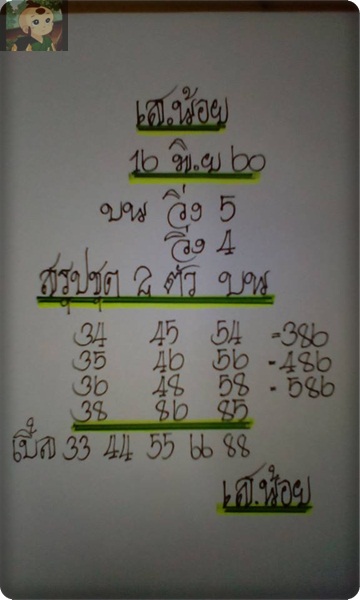 เส.น้อย
16 มิ.ย 60
บน วิ่ง 5
วิ่ง 4
สรุปชุด 2 ตัว บน
34 45 54 -386
35 46 56 -486
36 48 58 -586
38 86 85
เบิ้ล 33 44 55 66 88
เส.น้อย